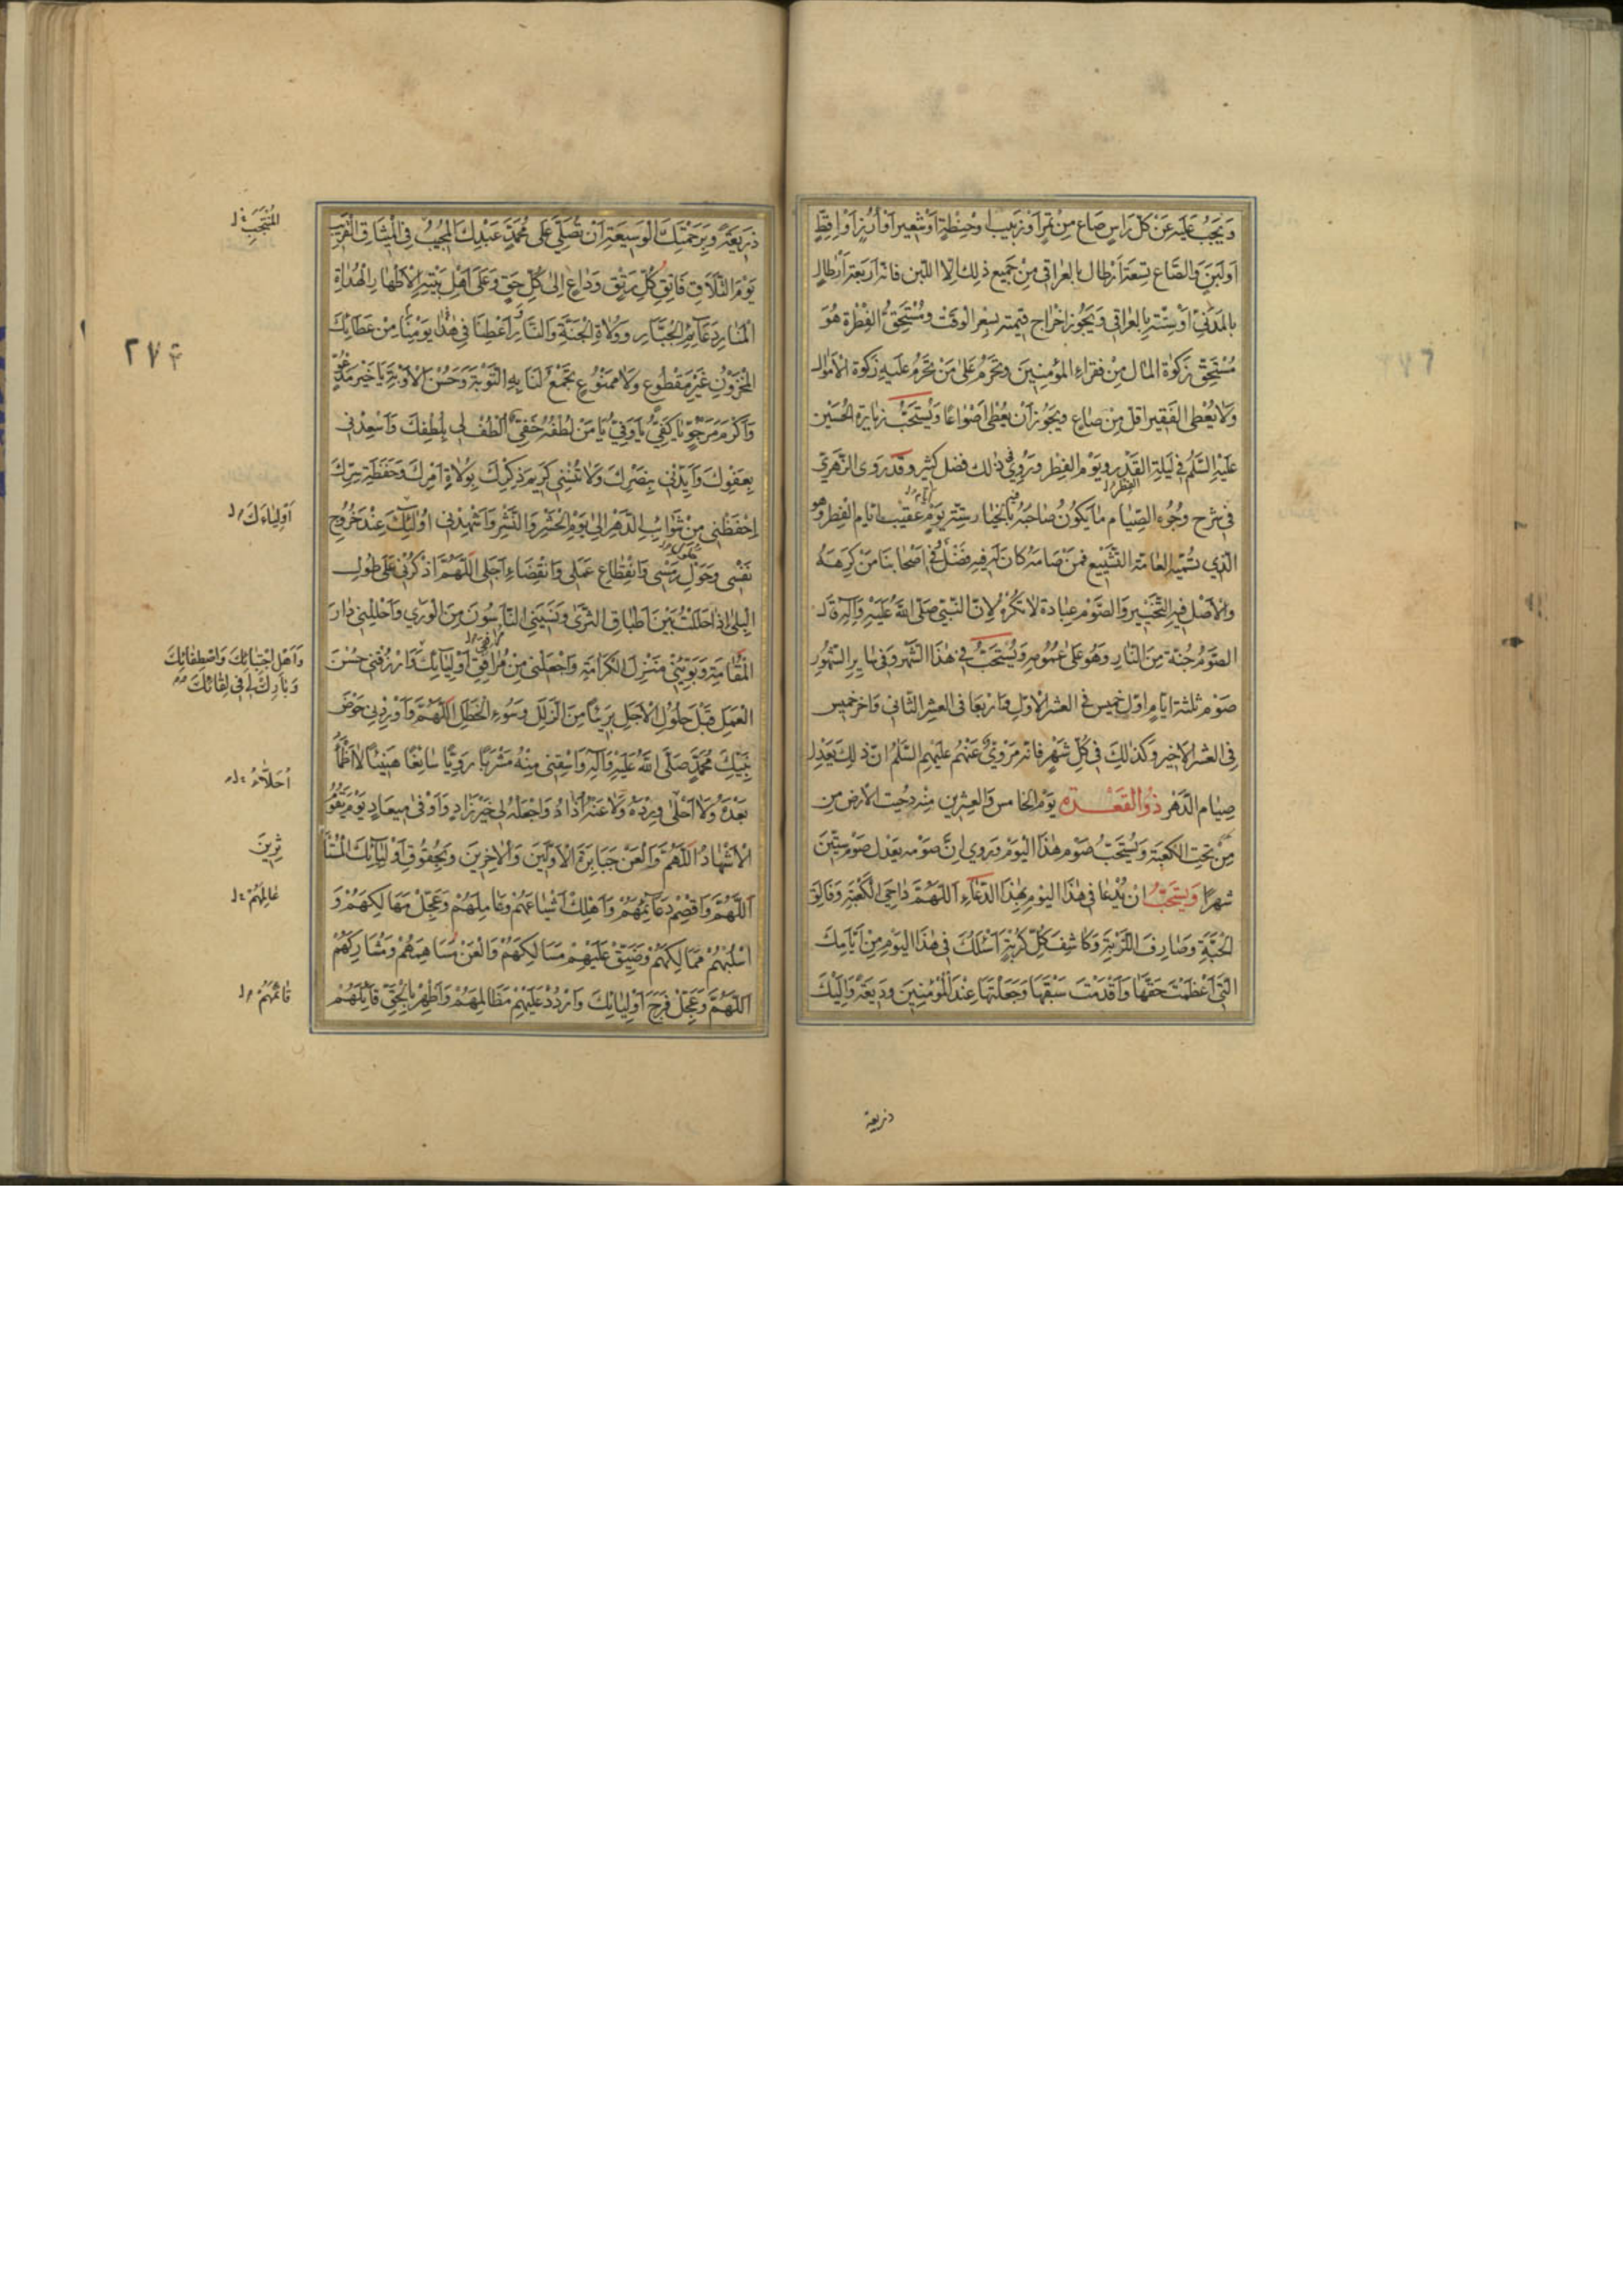 وَيَجِبُ عَلَيْهِ عَنْ كُلِّ رَاسٍ صَاعٌ مِنْ تَمْرٍ اَوْ زَبيبٍ اَوْ حِنْطَةٍ اَوْ شَعيرٍ اَوْ اَرُزٍّ اَوْ اِقِطٍ
اَوْ لَبَنٍ وَالصَّاع تِسْعَة اَرْطال بِالعِراقي مِنْ جَميعِ ذلِكَ اِلَّا اللَّبن فَانّه اَرْبَعَة اَرْطال
بِالمَدَنِيّ اَوْ سِتّة بِالعِراقي وَيَجُوز اِخْراج قيمته بِسِعْرِ الوَقْت وَمُسْتَحِقُّ الفِطْرَة هُوَ
مُسْتَحِقّ زكوة المال مِنْ فقراء المُؤمِنينَ وَتَحْرُم عَلى مَنْ تَحْرُم عَلَيْهِ زَكوة الاَمْوال
وَلا يُعْطى الفَقير اقلّ مِن صَاعٍ وَيَجُوز اَنْ يُعْطى اَصْواعًا وَيُسْتَحَبُّ زِيارَة الحُسَيْن
عَلَيْهِ السَّلَم في لَيلَةِ القَدْر وَيَوْمِ الفِطْر وَرُوِيَ في ذلك فضل كثير وقَدْ رَوى الزّهرِيّ
في شرح وُجُوهِ الصِّيام ما يَكُونُ صاحِبُهُ فيه بِالخِيار سِتّة يَوْم اَيّام عَقيب ايّام الفِطْر وَهُوَ
الّذي تسَمّيه العامّة التَّشْييع فمَنْ صامَهُ كانَ لَهُ فيهِ فَضْلٌ وَفي اَصْحابِنا مَنْ كَرِهَهُ
وَالاَصْل فيهِ التَّخْيير وَالصَّوْم عِبادَة لا تكْرهُ لِاَنّ النَّبيّ صَلّى اللهُ عَلَيْهِ وَآلِهِ قَالَ
الصَّوْمُ جُنَّة مِنَ النّار وَهُوَ عَلى عُمُومِهِ وَيُسْتَحَبُّ في هذَا الشَّهْر وَفي سايِر الشّهُور
صَوْم ثلثة ايّام اَوّل خَميس في العشر الاَوّل وَاَرْبِعا في العشر الثّاني وَآخر خَميس
فِي العشر الاخير وَكذلِكَ في كُلِّ شَهْرٍ فَانّه مَرْوِيّ عَنْهُمْ عَلَيْهِمُ السَّلَمُ انّ ذلِكَ يَعْدِل
صِيام الدَّهر ذُو القَعْدة يَوْم الخامِس وَالعِشْرين مِنْه دُحِيت الارض مِن
مِنْ تحتِ الكعبَة وَيُسْتَحَبُّ صَوْم هذَا اليَوْم وَرُوي اِنَّ صَوْمه يَعْدل صَوْم سِتّينَ
شهرًا وَيُسْتَحَبُّ انْ يُدْعا في هذَا اليَوْم بِهذَا الدُّعاءِ اَللّهُمَّ داحِيَ الكَعْبَةِ وَفالِقَ
الحَبَّةِ وَصارِفَ اللَّزْبَةِ وَكاشِفَ كُلِّ كُرْبَةٍ اَسْئَلُكَ في هذَا اليَوْمِ مِنْ اَيّامِكَ
الَّتي اَعْظَمْتَ حَقَّها وَاَقْدَمْتَ سَبْقَها وَجَعَلْتَها عِنْدَ المُؤْمِنينَ وَديعَةً وَاِلَيْكَ
ذريعة
ذَريعَةً وَبِرَحْمَتِكَ الْوَسيعَةِ اَنْ تُصَلِّيَ عَلى مُحَمَّدٍ عَبْدِكَ المُجيبِ فِي الْميثاقِ القَريبِ
المُنْتَجَبِ
يَوْمَ التَّلاقِ فاتِقِ كُلِّ رَتْقٍ وَداعٍ اِلى كُلِّ حَقٍّ وَعَلى اَهْلِ بَيْتِهِ الاَطْهارِ الْهُداةِ
الْمَنارِ دَعائِمِ الْجَبَّارِ وَوُلاةِ الْجَنَّةِ وَالنَّارِ وَاَعْطِنا في هذا يَوْمِنا مِنْ عَطائِكَ
٢٧٤
الْمَخْزُونِ غَيْرَ مَقْطُوعٍ وَلا مَمْنُوعٍ تَجْمَعُ لَنا بِهِ التَّوْبَةَ وَحُسْنَ الاَوْبَةِ يا خَيْرَ مَدْعُوٍّ
وَاَكْرَمَ مَرْجُوٍّ يا كَفِيُّ يا وَفِيُّ يا مَنْ لُطْفُهُ خَفِيٌّ اُلْطُفْ لي بِلُطْفِكَ وَاَسْعِدْني
بِعَفْوِكَ وَاَيِّدْني بِنَصْرِكَ وَلا تُنْسِني كَريمَ ذِكْرِكَ بِوُلاةِ اَمْرِكَ وَحَفَظَةِ سِرِّكَ
اِحْفَظْني مِنْ شَوائِبِ الدَّهْرِ اِلى يَوْمِ الْحَشْرِ وَالنَّشْرِ وَاَشْهِدْني اَوْلِيائَكَ عِنْدَ خُرُوجِ
اَوْلِياءَكَ
نَفْسي وَحُلُولِ رَمْسي وَانْقِطاعِ عَمَلي وَانْقِضاءِ اَجَلي اَللّهُمَّ اذْكُرْني عَلى طُولِ
الْبِلى اِذا حَلَلْتُ بَيْنَ اَطْباقِ الثَّرى وَنَسِيَنِي النَّاسُونَ مِنَ الْوَرى وَاَحْلِلْني دارَ
الْمُقامَةِ وَبَوِّئْني مَنْزِلَ الْكَرامَةِ وَاجْعَلْني مِنْ مُرافِقي اَوْلِيائِكَ وَارْزُقْني حُسْنَ
وَاَهْلِ اجْتِبائِكَ وَاصْطِفائِكَ
وَبارِكْ لي في لِقائِكَ
الْعَمَلِ قَبْلَ حُلُولِ الاَجَلِ بَريئًا مِنَ الزَّلَلِ وَسُوءِ الْخَطَلِ اَللّهُمَّ وَاَوْرِدْني حَوْضَ
نَبِيِّكَ مُحَمَّدٍ صَلَّى اللهُ عَلَيْهِ وَآلِهِ وَاسْقِني مِنْهُ مَشْرَبًا رَوِيًّا سائِغًا هَنيئًا لا اَظْمَأُ
بَعْدَهُ وَلا اُحَلَّأُ وِرْدَهُ وَلا عَنْهُ اُذادُ وَاجْعَلْهُ لي خَيْرَ زادٍ وَاَوْفى ميعادٍ يَوْمَ يَقُومُ
اُحَلَّأُ
الاَشْهادُ اَللّهُمَّ وَالْعَنْ جَبابِرَةَ الاَوَّلينَ وَالآخِرينَ وَبِحُقُوقِ اَوْلِيائِكَ الْمُسْتَأْ
ثِرينَ
اَللّهُمَّ وَاقْصِمْ دَعائِمَهُمْ وَاَهْلِكْ اَشْياعَهُمْ وَعامِلَهُمْ وَعَجِّلْ مَهالِكَهُمْ وَ
عالِمَهُمْ
اسْلُبْهُمْ مَمالِكَهُمْ وَضَيِّقْ عَلَيْهِمْ مَسالِكَهُمْ وَالْعَنْ مُساهِمَهُمْ وَمُشارِكَهُمْ
اَللّهُمَّ وَعَجِّلْ فَرَجَ اَوْلِيائِكَ وَارْدُدْ عَلَيْهِمْ مَظالِمَهُمْ وَاَظْهِرْ بِالْحَقِّ قائِلَهُمْ
قائِمَهُمْ